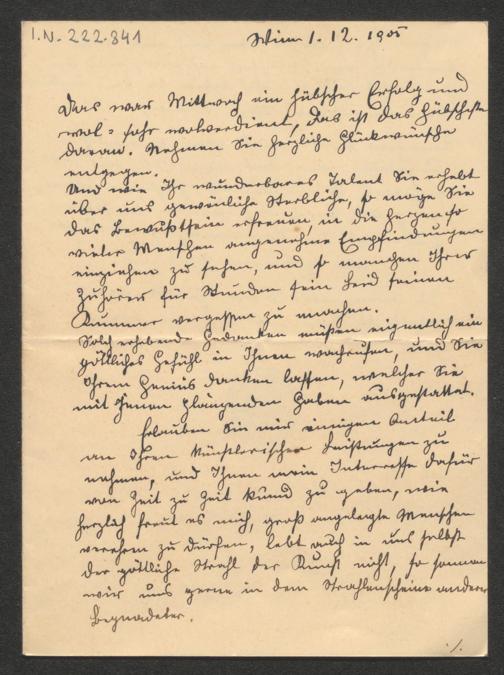 I.N. 222.841
Wien 1. 12. 1905
Das war Mittwoch ein hübscher Erfolg und
wol = sehr wolverdient, das ist das Hübscheste
daran. Nehmen Sie herzliche Glückwünsche
entgegen.
Und wie Ihr wunderbares Talent Sie erhebt
über uns gewönliche Sterbliche, so möge Sie
das Bewußtsein erfreuen, in die Herzen so
vieler Menschen angenehme Empfindungen
einziehen zu sehen, und so manchen Ihrer
Zuhörer für Stunden sein Leid seinen
Kummer vergessen zu machen.
Solch erhebende Gedanken müßen eigentlich ein
göttliches Gefühl in Ihnen wachrufen, und Sie
Ihrem Genius danken lassen, welcher Sie
mit Ihnen glänzenden Gaben ausgestattet.
Erlauben Sie mir einigen Anteil
an Ihren künstlerischen Leistungen zu
nehmen, und Ihnen mein Interesse dafür
von Zeit zu Zeit kund zu geben, wie
herzlich freut es mich, groß angelegte Menschen
verehren zu dürfen, lebt auch in uns selbst
der göttliche Strahl der Kunst nicht, so sonnen
wir uns gerne in dem Strahlenscheine anderer
Begnadeter.
./.